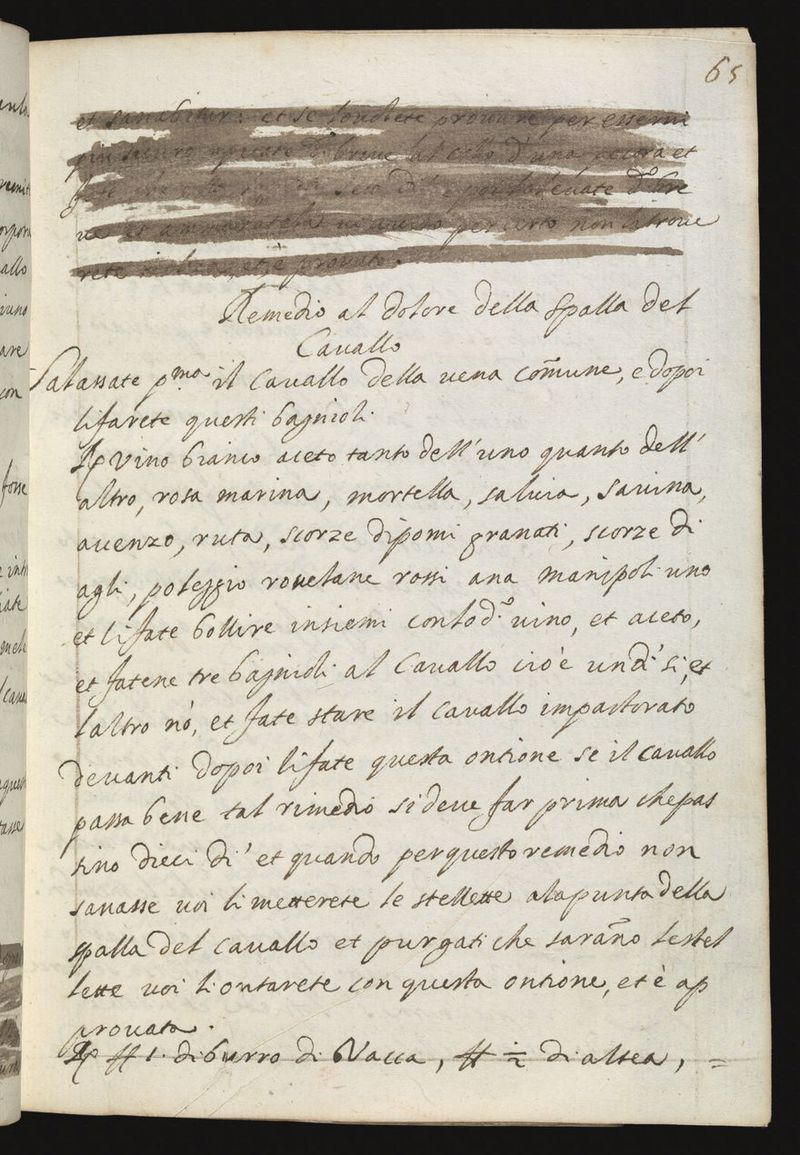 65
et sanabitur: et se vorrete provare per esserni
più sicuro breve al collo d'una pecora et
levate d.º bre
ve et per certo non li trove
rete et è provato.
Remedio al dolore della spalla del
Cavallo
Salassate p.ma il Cavallo della vena com̃une, e dopoi
lifarete questi bagnioli.
℞ Vino bianco aceto tanto dell'uno quanto dell'
altro, rosa marina, mortella, salvia, savina,
avenzo, ruta, scorze dipomi granati, scorze di
agli, poleggio rovetane rossi ana manipoli uno
et lifate bollire insiemi conlod.º vino, et aceto,
et fatene tre bagnioli al Cavallo cioè un dì si, et
laltro nò, et fate stare il cavallo impastorato
devanti dopoi lifate questa ontione se il cavallo
passa bene tal rimedio si deve far prima chepas
sino dieci di' et quando perquesto remedio non
sanasse voi li metterete le stellette alapunta della
spalla del cavallo et purgati che saran̄o lestel
lette voi li ontarete con questa ontione, et è ap
provata.
℞ ℔ 1. di burro di Vacca, ℔ ½ di altea, =